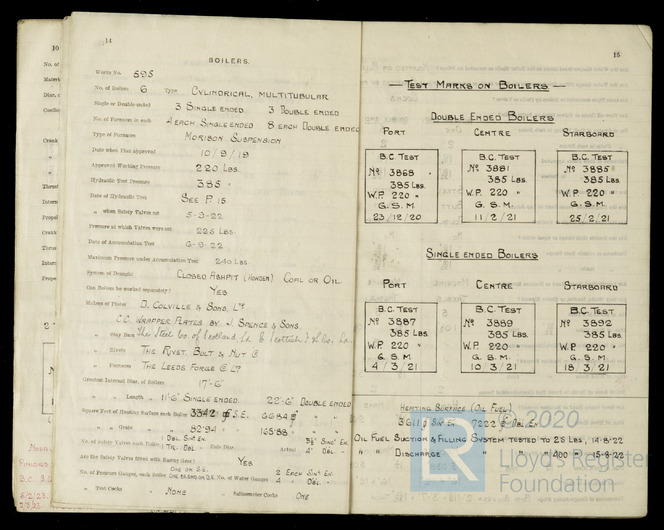 14
BOILERS.
Works No. 595
No. of Boilers 6 Type CYLINDRICAL, MULTITUBULAR
Single or Double-ended 3 SINGLE ENDED 3 DOUBLE ENDED
No. of Furnaces in each 4 EACH SINGLE ENDED 8 EACH DOUBLE ENDED
Type of Furnaces MORISON SUSPENSION
Date when Plan approved 10/9/19
Approved Working Pressure 220 LBS.
Hydraulic Test Pressure 385 "
Date of Hydraulic Test SEE P. 15
" when Safety Valves set 5-9-22
Pressure at which Valves were set 225 LBS.
Date of Accumulation Test 6-9-22
Maximum Pressure under Accumulation Test 240 LBS.
System of Draught CLOSED ASHPIT (HOWDEN) COAL OR OIL
Can Boilers be worked separately? YES
Makers of Plates D. COLVILLE & SONS, LTD
C.C. WRAPPER PLATES BY J. SPENCE & SONS.
" Stay Bars The Steel Co. of Scotland
" Rivets THE RIVET, BOLT & NUT Co
" Furnaces THE LEEDS FORGE Co LTD
Greatest Internal Diam. of Boilers 17'-6"
" " Length 11'-6" SINGLE ENDED. 22'-6" DOUBLE ENDED
Square Feet of Heating Surface each Boiler 3342 S.E. 6684 " "
" " Grate " 82.94 " 165.88 " "
No. of Safety Valves each Boiler 1 DBL. SIN. EN. 1 TRI. DBL. " Rule Diam. Actual 3½" SING. EN. 4" DBL. "
Are the Safety Valves fitted with Easing Gear? YES
No. of Pressure Gauges, each Boiler ONE ON S.E. No. of Water Gauges 2 EACH SIN. EN. 4 " DBL. "
" Test Cocks " NONE " Salinometer Cocks ONE
15
TEST MARKS ON BOILERS
DOUBLE ENDED BOILERS
PORT CENTRE STARBOARD
B.C. TEST B.C. TEST B.C. TEST
No 3868 No 3881 No 3885
385 LBS. 385 LBS. 385 LBS.
W.P. 220 " W.P. 220 " W.P. 220 "
G.S.M. G.S.M. G.S.M.
23/12/20 11/2/21 25/2/21
SINGLE ENDED BOILERS
PORT CENTRE STARBOARD
B.C. TEST B.C. TEST B.C. TEST
No 3887 No 3889 No 3892
385 LBS. 385 LBS. 385 LBS.
W.P. 220 " W.P. 220 " W.P. 220 "
G.S.M. G.S.M. G.S.M.
4/3/21 10/3/21 18/3/21
HEATING SURFACE (OIL FUEL)
3611 SIN. EN. 7222 DBL. EN.
OIL FUEL SUCTION & FILLING SYSTEM TESTED TO 25 LBS, 14-8-22
" " DISCHARGE " " " 400 " 15-8-22
© 2020
LR
Lloyd's Register
Foundation